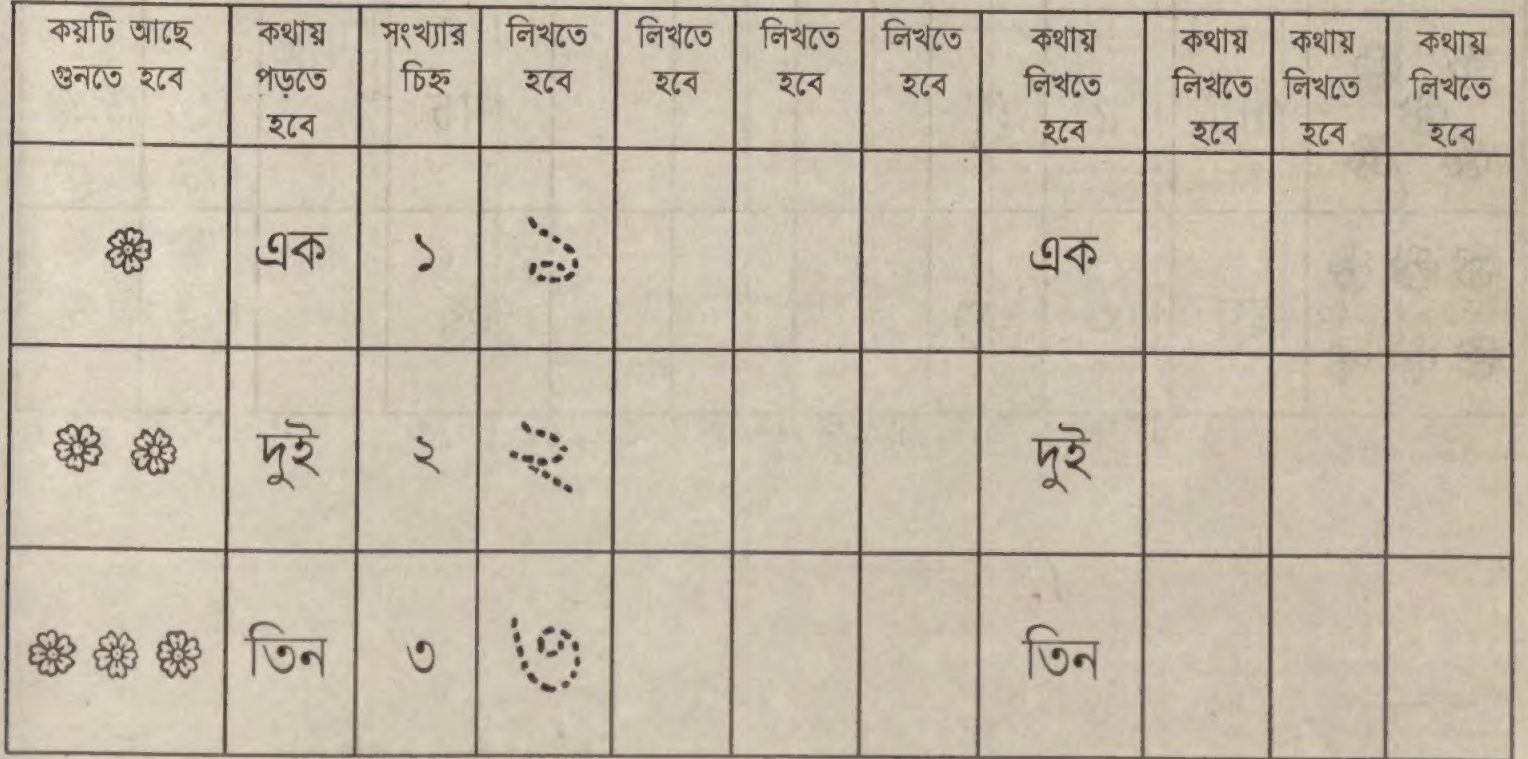 কয়টি আছে গুনতে হবে | কথায় পড়তে হবে | সংখ্যার চিহ্ন | লিখতে হবে | লিখতে হবে | লিখতে হবে | লিখতে হবে | কথায় লিখতে হবে | কথায় লিখতে হবে | কথায় লিখতে হবে | কথায় লিখতে হবে
এক ১ ১ এক
দুই ২ ২ দুই
তিন ৩ ৩ তিন